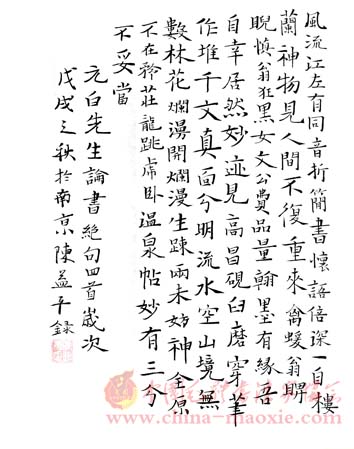 風流江左有同音折簡書懷語倍深一自樓
蘭神物見人間不復重來禽蝯翁睥
睨慎翁狂黑女文公費品量翰墨有緣吾
自幸居然妙迹見高昌硯臼磨穿筆
作堆千文真面分明流水空山境無
數林花爛漫開爛漫生疎兩未妨神全原
不在矜莊龍跳虎臥溫泉帖妙有三分
不妥當
元白先生論書絕句四首歲次
戊戌之秋於南京陳益平錄
www.china-maoxie.com